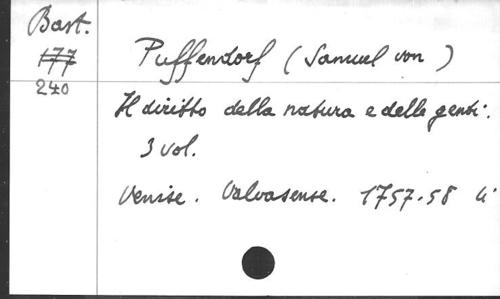 Bast.
177
240
Puffendorf (Samuel von)
Il diritto della natura e delle genti.
3 vol.
Venise. Valvasense. 1757-58 4°